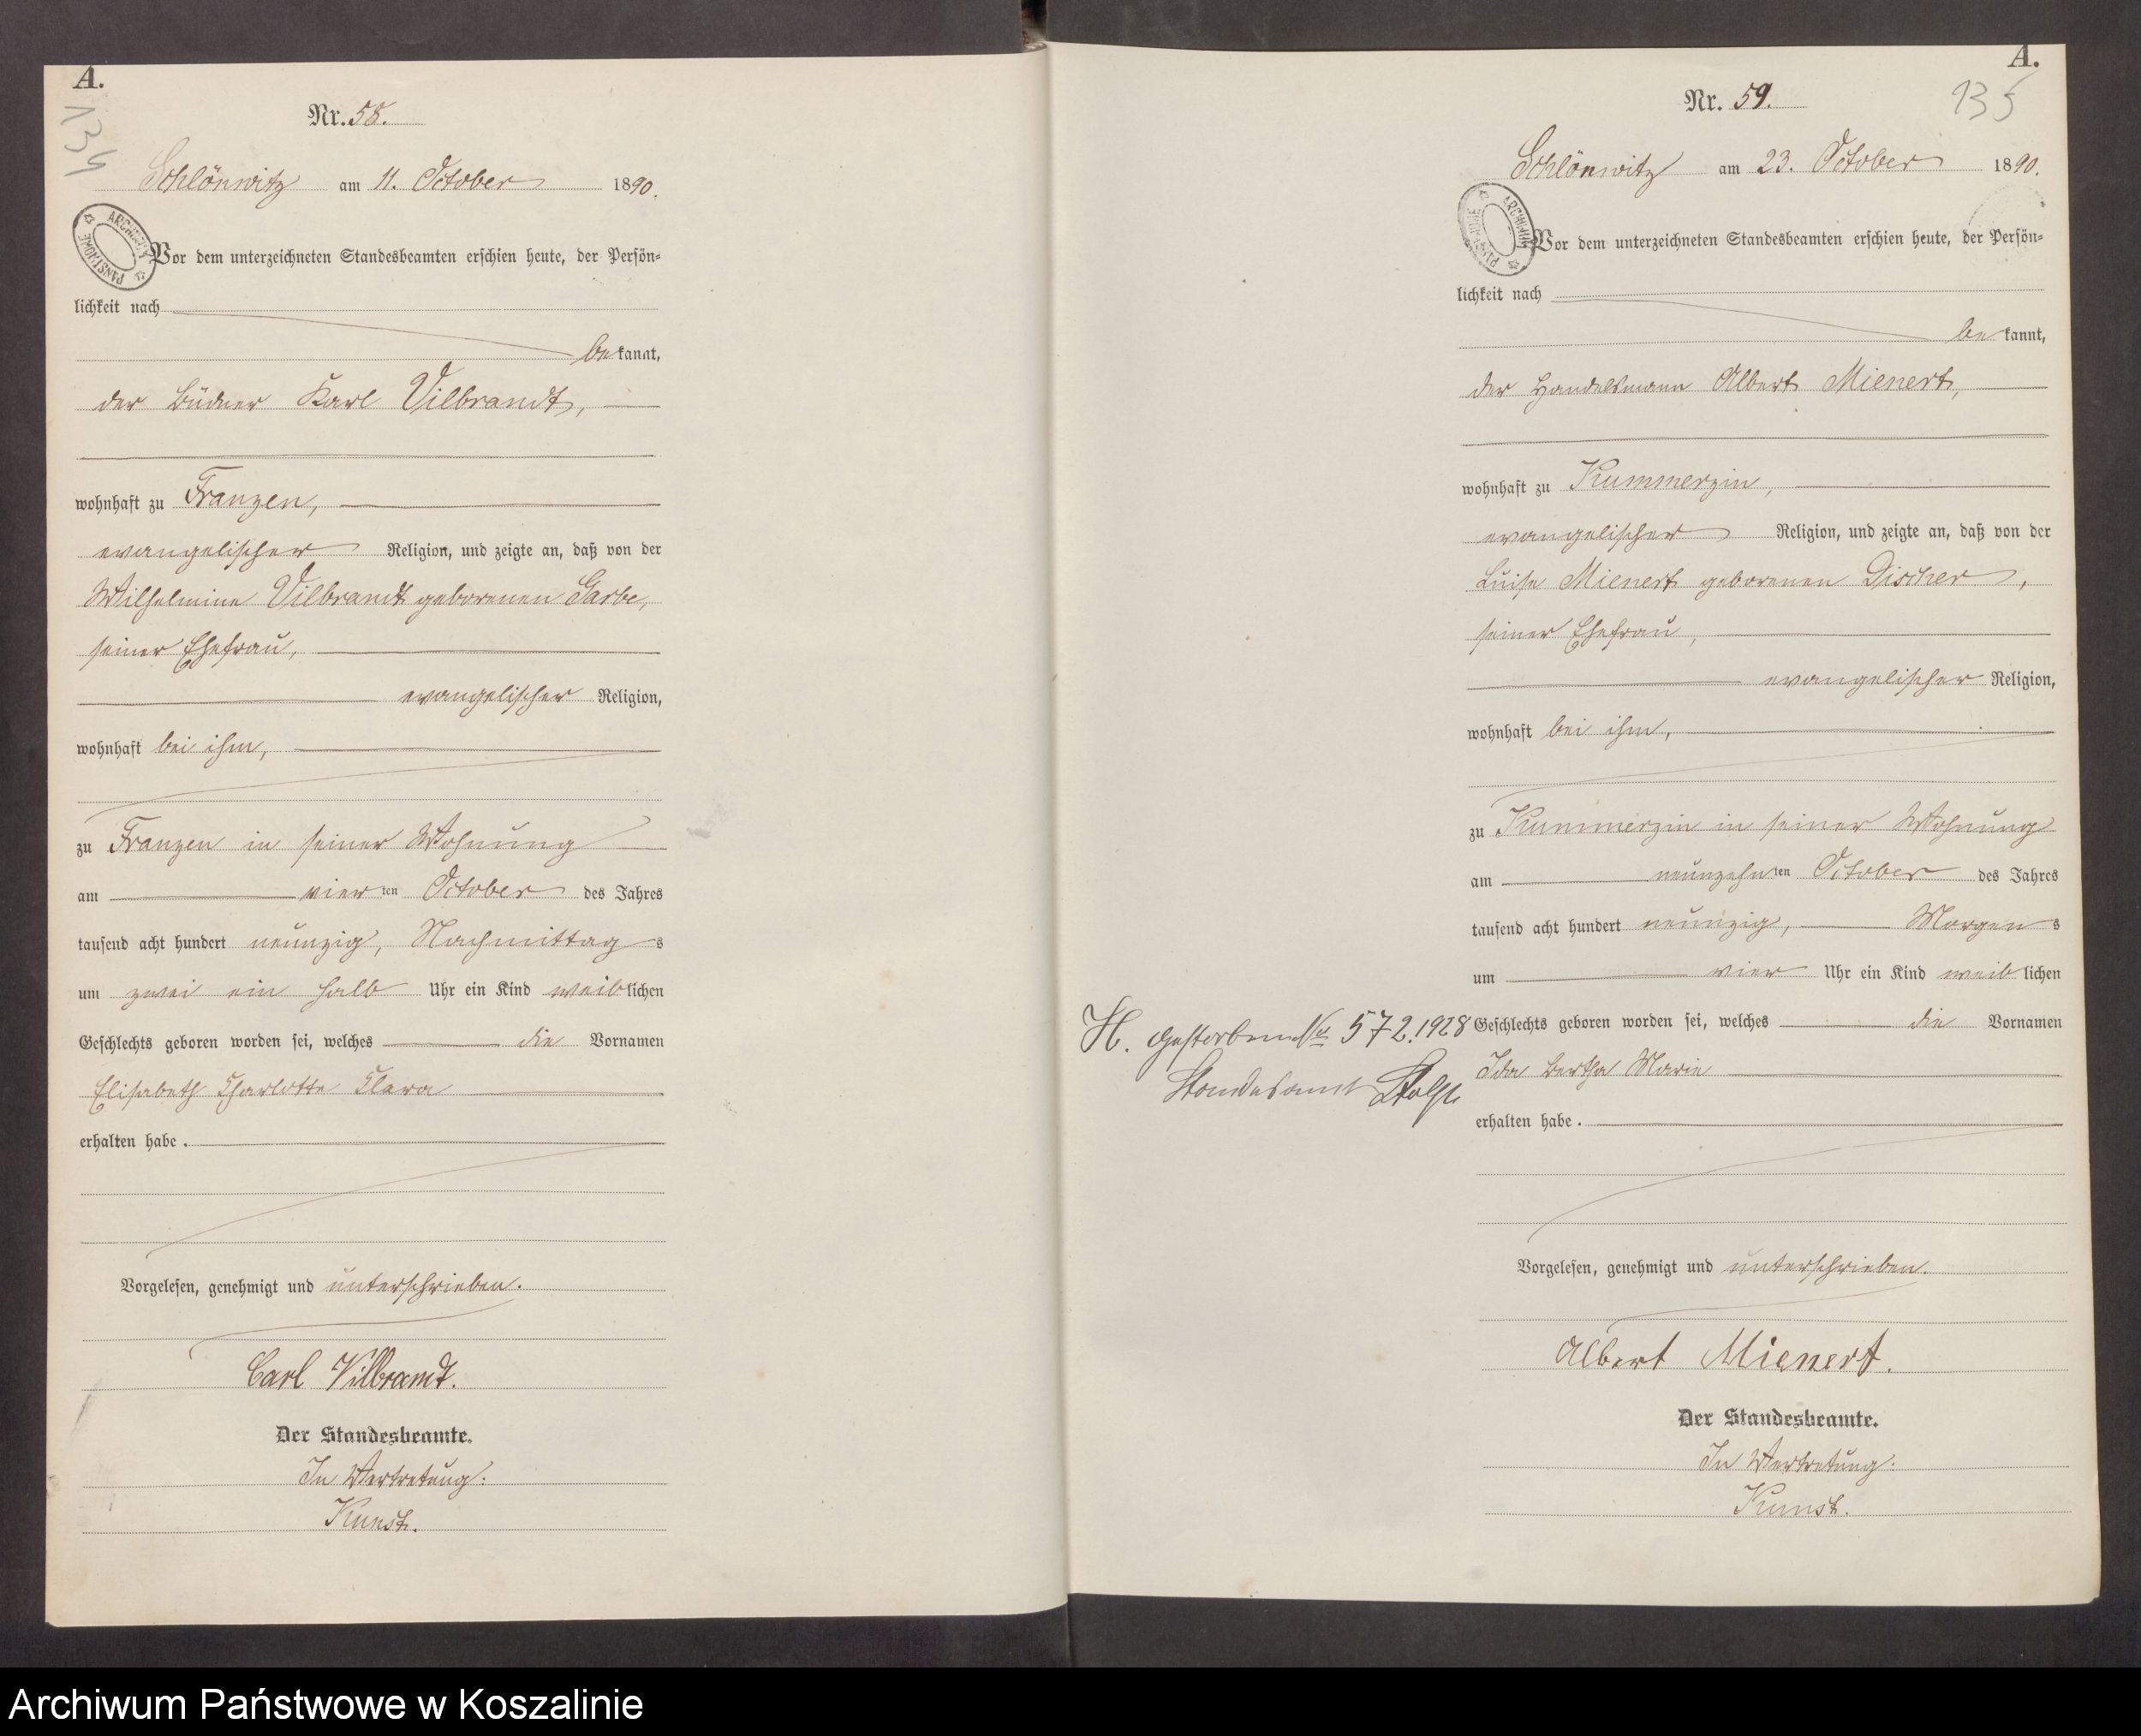 A.
134
Nr. 58.
Schlönwitz am 11. October 1890.
ARCHIWUM PAŃSTWOWE
Vor dem unterzeichneten Standesbeamten erschien heute, der Persön-
lichkeit nach
bekannt,
der Büdner Karl Vilbrandt,
wohnhaft zu Franzen,
evangelischer Religion, und zeigte an, daß von der
Wilhelmine Vilbrandt geborenen Garbe,
seiner Ehefrau,
evangelischer Religion,
wohnhaft bei ihm,
zu Franzen in seiner Wohnung
am vierten October des Jahres
tausend acht hundert neunzig, Nachmittags
um zwei ein halb Uhr ein Kind weiblichen
Geschlechts geboren worden sei, welches die Vornamen
Elisabeth Charlotte Clara
erhalten habe.
Vorgelesen, genehmigt und unterschrieben.
Carl Vilbrandt.
Der Standesbeamte.
In Vertretung:
Kunst.
A.
135
Nr. 59.
Schlönwitz am 23. October 1890.
Vor dem unterzeichneten Standesbeamten erschien heute, der Persön-
lichkeit nach
bekannt,
der Handelsmann Albert Mienert,
wohnhaft zu Kummerzin,
evangelischer Religion, und zeigte an, daß von der
Luise Mienert geborenen Discher,
seiner Ehefrau,
evangelischer Religion,
wohnhaft bei ihm,
zu Kummerzin in seiner Wohnung
am neunzehnten October des Jahres
tausend acht hundert neunzig, Morgens
um vier Uhr ein Kind weiblichen
Geschlechts geboren worden sei, welches die Vornamen
Ida Bertha Marie
erhalten habe.
H. Gestorben No 572.1928
Standesamt Stolp
Vorgelesen, genehmigt und unterschrieben.
Albert Mienert.
Der Standesbeamte.
In Vertretung:
Kunst.
Archiwum Państwowe w Koszalinie